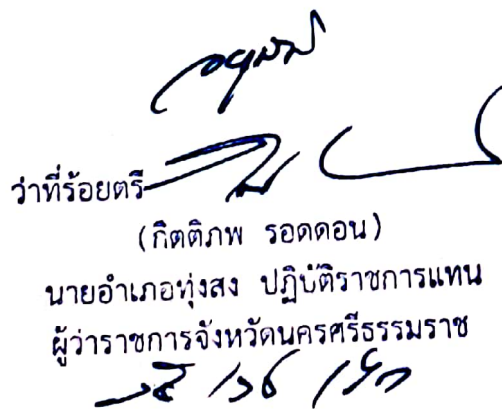 อนุมัติ
ว่าที่ร้อยตรี
(กิตติภพ รอดดอน)
นายอำเภอทุ่งสง ปฏิบัติราชการแทน
ผู้ว่าราชการจังหวัดนครศรีธรรมราช